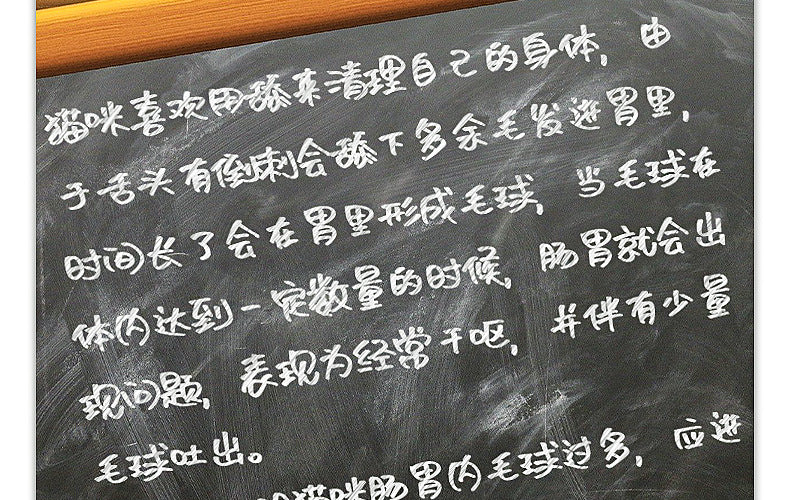 猫咪喜欢用舔来清理自己的身体，由
于舌头有倒刺会舔下多余毛发进胃里，
时间长了会在胃里形成毛球，当毛球在
体内达到一定数量的时候，肠胃就会出
现问题，表现为经常干呕，并伴有少量
毛球吐出。
猫咪肠胃内毛球过多，应进